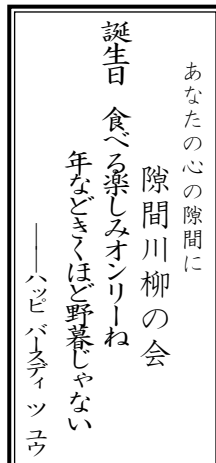 あなたの心の隙間に
隙間川柳の会
誕生日　食べる楽しみオンリーね
年などきくほど野暮じゃない
――ハッピ バースディ ツ ユウ